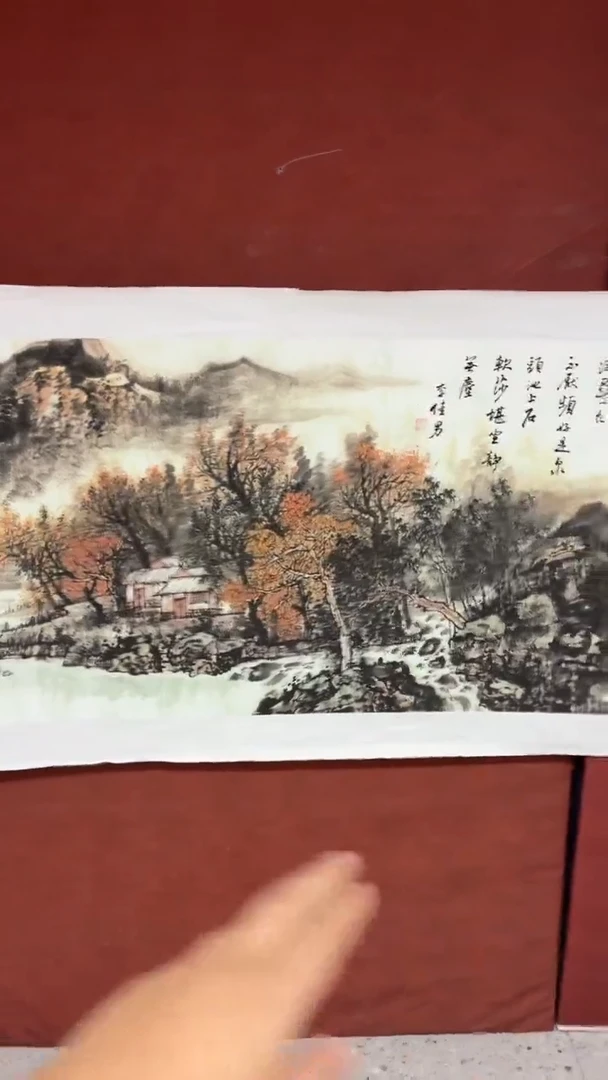 不厭頻好是泉
頭池上石
軟莎堪坐靜
無塵
李佳男